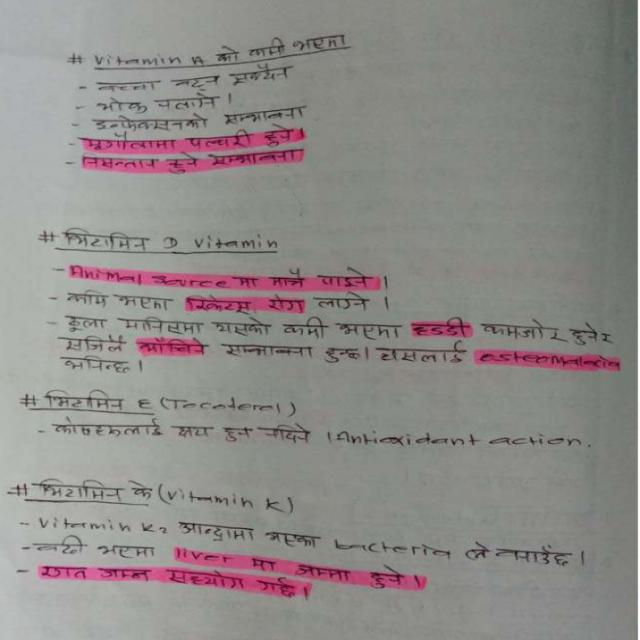 # Vitamin A को कमी भएमा
- बच्चा बढ्न सक्दैन
- भोक नलाग्ने।
- इन्फेक्सनको सम्भावना
- मृगौलामा पत्थरी हुने।
- निसन्तान हुने सम्भावना
# भिटामिन D Vitamin
- Animal source मा मात्रै पाइने।
- कमि भएमा रिकेट्स रोग लाग्ने।
- ठूला मानिसमा यसको कमी भएमा हड्डी कमजोर हुनेर
सजिलै भाँचिने सम्भावना हुन्छ। यसलाई osteomalacia
भनिन्छ।
# भिटामिन E (Tocoferol)
- कोषहरुलाई क्षय हुन नदिने। Antioxidant action.
# भिटामिन के (Vitamin K)
- Vitamin K2 आन्द्रामा भएका bacteria ले बनाउँछ।
- बढी भएमा liver मा जम्मा हुने।
- रगत जम्न सहयोग गर्छ।